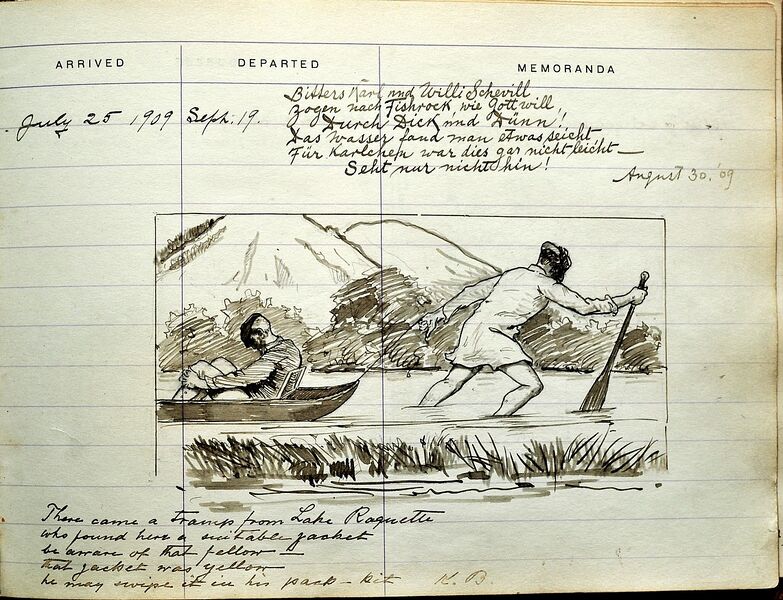 ARRIVED DEPARTED MEMORANDA
July 25 1909 Sept. 19.
Bitters Karl und Willi Schevill
zogen nach Fishrock, wie Gott will,
Durch Dick und Dünn!
Das Wasser fand man etwas seicht
Für Karlchen war dies gar nicht leicht —
Seht nur nicht hin!
August 30. '09
There came a tramp from Lake Raquette
who found here a suitable jacket
be aware of that fellow —
that jacket was yellow
he may swipe it in his pack-kit K. B.